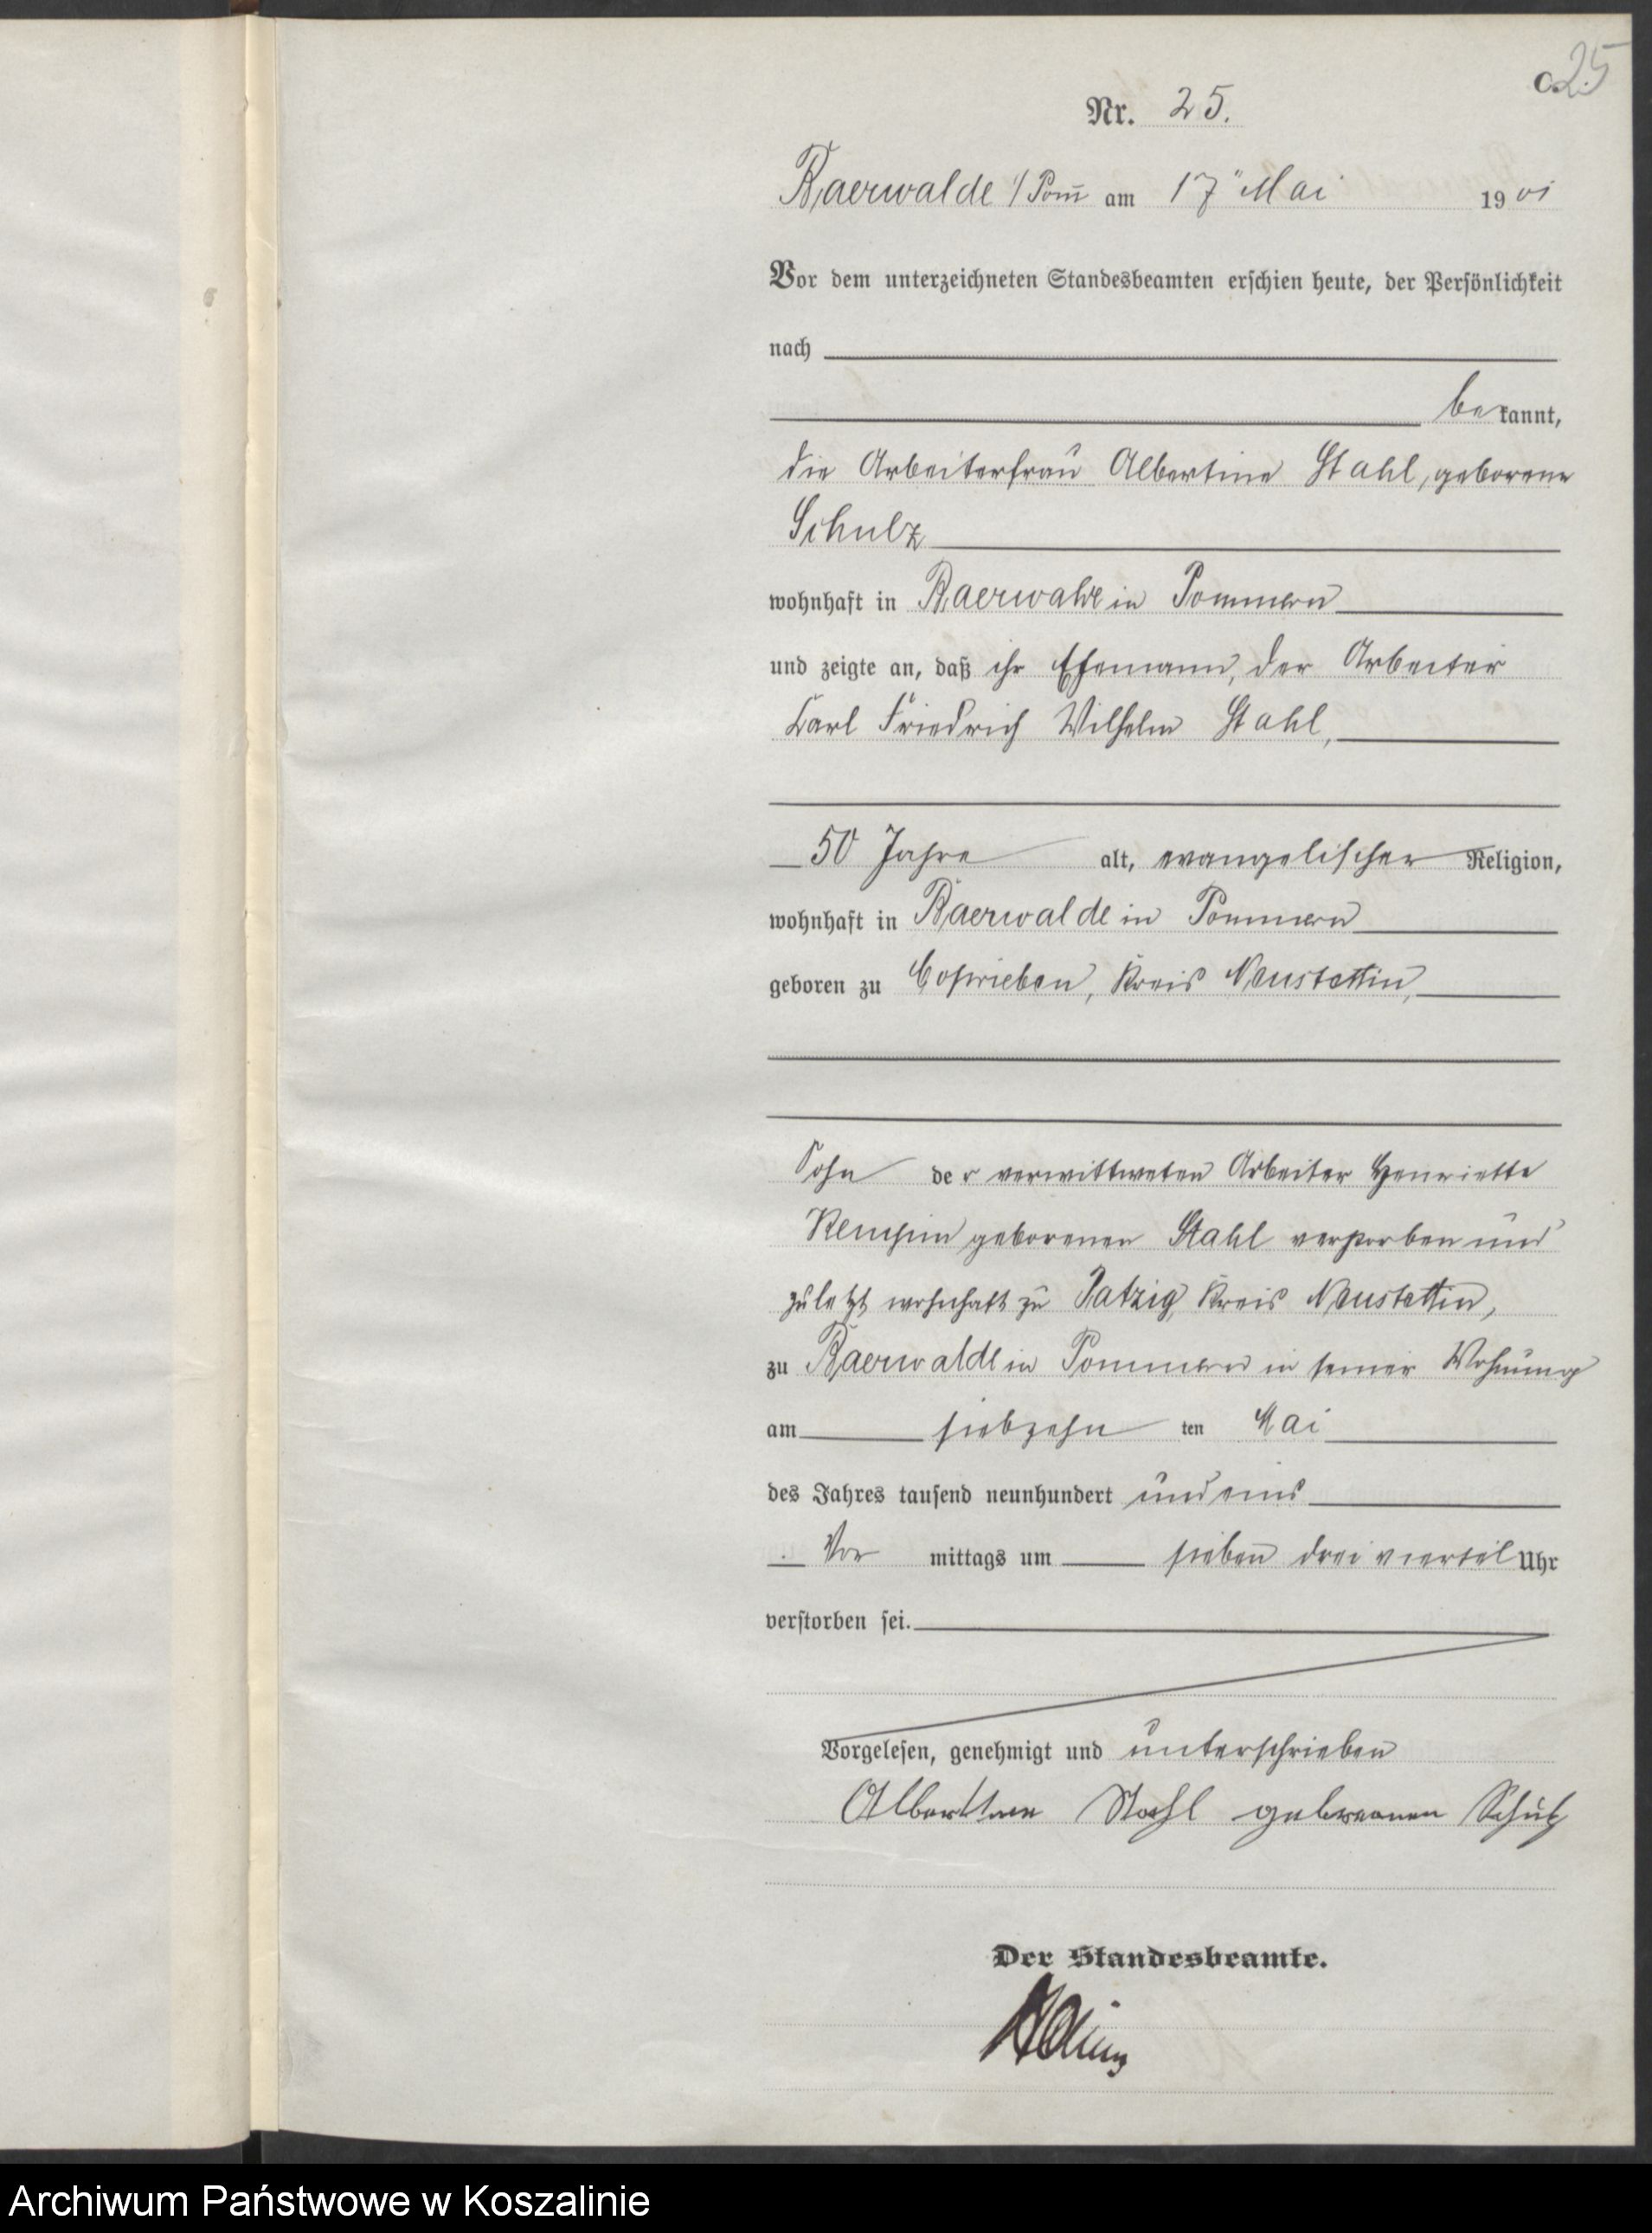 C. 25
Nr. 25.
Baerwalde i/Pom̄ am 17" Mai 1901
Vor dem unterzeichneten Standesbeamten erschien heute, der Persönlichkeit
nach
bekannt,
die Arbeiterfrau Albertine Stahl, geborene
Schulz
wohnhaft in Baerwalde in Pommern
und zeigte an, daß ihr Ehemann, der Arbeiter
Karl Friedrich Wilhelm Stahl,
50 Jahre alt, evangelischer Religion,
wohnhaft in Baerwalde in Pommern
geboren zu Coprieben, Kreis Neustettin,
Sohn der verwittweten Arbeiter Henriette
geborenen Stahl verstorben und
zuletzt wohnhaft zu Patzig, Kreis Neustettin,
zu Baerwalde in Pommern in seiner Wohnung
am siebzehn ten Mai
des Jahres tausend neunhundert und eins
Vor mittags um sieben drei viertel Uhr
verstorben sei.
Vorgelesen, genehmigt und unterschrieben
Albertine Stahl Schulz
Der Standesbeamte.
Archiwum Państwowe w Koszalinie